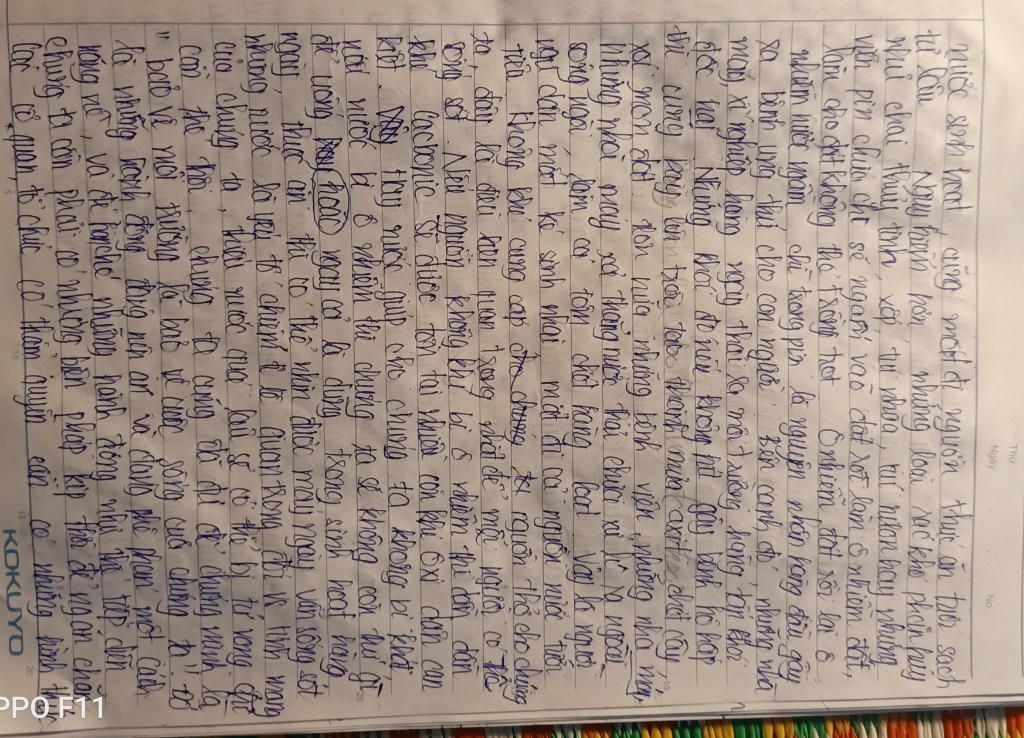 Thứ
Ngày
No.
nước sinh hoạt, cũng mất đi nguồn thức ăn tươi sạch
từ Nguy hiểm hơn những loại rác khó phân hủy
như chai thủy tinh, xốp, tú nhựa, túi nilon hay những
viên pin chứa chì sẽ ngấm vào đất rồi làm ô nhiễm đất,
làm cho đất không thể trồng trọt. Ô nhiễm đất rồi lại ô
nhiễm nước ngầm, chì trong pin là nguyên nhân hàng đầu gây
ra bệnh ung thư cho con người. Bên cạnh đó, những nhà
máy, xí nghiệp hàng ngày thải ra môi trường hàng tấn khói
độc hại. Những khói đó nếu không hít gây bệnh hô hấp
thì cũng bay lên trời tạo thành mưa axit chết cây,
xói mòn đất. Hơn nữa những bệnh viện, những nhà máy
những nhà máy xả thẳng nước thải chưa xử lí ra ngoài
sông ngòi, làm cá tôn chết hàng loạt vậy là người
ngư dân mất kế sinh nhai, mất đi cả nguồn nước tưới
tiêu. Không khí cung cấp nguồn thở cho chúng
ta, đâu là điều kiện quan trọng nhất để mỗi người có thể
sống sót. Nếu nguồn không khí bị ô nhiễm thì dần dần
khí cacbonic sẽ được tồn tại nhiều còn khí ôxi dần cạn
kiệt. Hay nước giúp cho chúng ta không bị khát,
nếu nước bị ô nhiễm thì chúng ta sẽ không còn thứ gì
để uống hoặc ngay cả là dùng trong sinh hoạt hàng
ngày, thức ăn thì có thể nhịn được mấy ngày vẫn sống sót
nhưng nước là yếu tố chính và quan trọng đối với tính mạng
của chúng ta, thiếu nước quá lâu sẽ có thể bị tử vong. Chỉ
cần thế thôi, chúng ta cũng đã đủ để chứng minh là
" bảo vệ môi trường là bảo vệ cuộc sống của chúng ta". Đó
là những hành động đáng nên án và đáng phê phán một cách
nặng nề, và để hạn chế những hành động như thế tiếp diễn
chúng ta cần phải có những biện pháp kịp thời để ngăn chặn.
Các cơ quan, tổ chức có thẩm quyền cần có những hình thức
KOKUYO
PPO F11